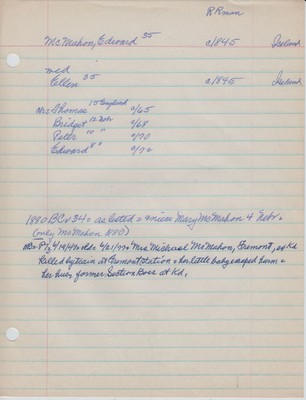 RRman
McMahon, Edward 35 c/1845 Ireland
med
Ellen 35 c/1845 Ireland
Thomas 15 England c/65
Bridget 12 Nebr c/68
Peter 10 " c/70
Edward 8 " c/72
1880 BC 34 = as listed = niece Mary McMahon 4 Nebr.
(only McMahon 1880)
Mrs Michael McMahon, Fremont, ex Kd
killed by train at Fremont station = her little baby escaped harm =
her husb former Section Boss at Kd,